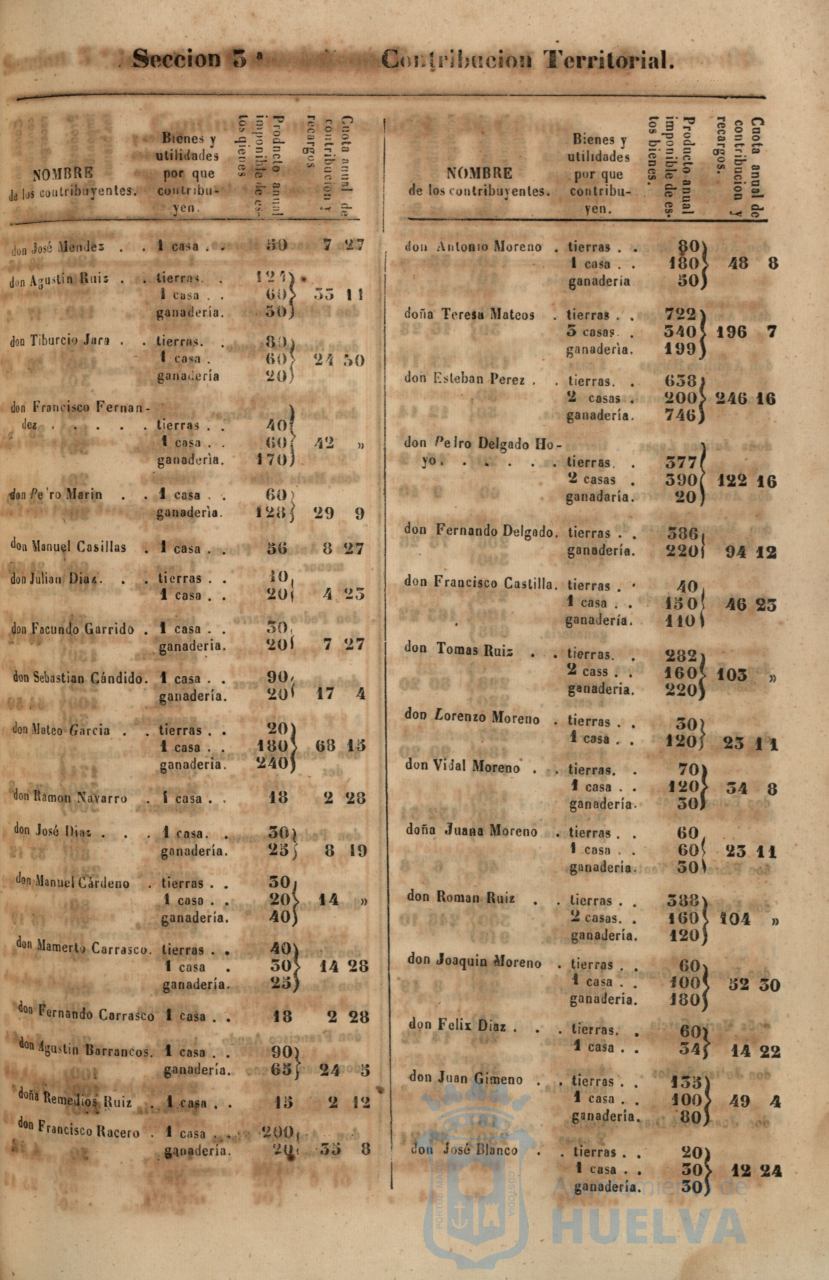 Seccion 3ª Contribucion Territorial.
NOMBRE
de los contribuyentes.
Bienes y
utilidades
por que
contribu-
yen.
Producto anual
imponible de es-
tos bienes.
Cuota anual de
contribucion y
recargos
don José Mendez . . 1 casa . . 50 7 27
don Agustin Ruiz . . tierras. .
1 casa . . 60 35 11
ganaderia. 50
don Tiburcio Jara . . tierras. . 80
1 casa . 60 24 50
ganaderia 20
don Francisco Fernan-
dez . . . . . tierras . . 40
1 casa . . 60 42 »
ganaderia. 170
don Pe'ro Marin . . 1 casa . . 60
ganaderia. 128 29 9
don Manuel Casillas . 1 casa . . 36 8 27
don Julian Diaz. . . tierras . . 10
1 casa . . 20 4 23
don Facundo Garrido . 1 casa . . 30
ganaderia. 20 7 27
don Sebastian Cándido. 1 casa . . 90
ganadería. 20 17 4
don Mateo Garcia . . tierras . . 20
1 casa . . 180 68 15
ganadería. 240
don Ramon Navarro . 1 casa . . 18 2 28
don José Dias . . . 1 casa. . 30
ganadería. 25 8 19
don Manuel Cárdeno . tierras . . 30
1 casa . . 20 14 »
ganadería. 40
don Mamerto Carrasco. tierras . . 40
1 casa . 30 14 28
ganadería. 25
don Fernando Carrasco 1 casa . . 18 2 28
don Agustin Barrancos. 1 casa . . 90
ganadería. 65 24 5
doña Remedios Ruiz . 1 casa . . 15 2 12
don Francisco Racero . 1 casa . . 200
ganadería. 20 35 8
NOMBRE
de los contribuyentes.
Bienes y
utilidades
por que
contribu-
yen.
Producto anual
imponible de es-
tos bienes.
Cuota anual de
contribucion y
recargos.
don Antonio Moreno . tierras . . 80
1 casa . . 180 48 8
ganaderia 50
doña Teresa Mateos . tierras . . 722
3 casas . 340 196 7
ganaderia. 199
don Esteban Perez . . tierras. . 638
2 casas . 200 246 16
ganadería. 746
don Pedro Delgado Ho-
yo. . . . . . tierras. . 377
2 casas . 390 122 16
ganadaría. 20
don Fernando Delgado. tierras . . 386
ganadería. 220 94 12
don Francisco Castilla. tierras . . 40
1 casa . . 150 46 23
ganadería. 110
don Tomas Ruiz . . tierras. . 282
2 cass . . 160 103 »
ganaderia. 220
don Lorenzo Moreno . tierras . . 30
1 casa . . 120 23 11
don Vidal Moreno . . tierras. . 70
1 casa . . 120 34 8
ganadería. 30
doña Juana Moreno . tierras . . 60
1 casa . . 60 23 11
ganadería. 30
don Roman Ruiz . . tierras . . 388
2 casas. . 160 104 »
ganadería. 120
don Joaquin Moreno . tierras . . 60
1 casa . . 100 52 30
ganaderia. 180
don Felix Diaz . . . tierras. . 60
1 casa . . 34 14 22
don Juan Gimeno . . tierras . . 135
1 casa . . 100 49 4
ganadería. 80
don José Blanco . . tierras . . 20
1 casa . . 30 12 24
ganadería. 30
Ayuntamiento de
HUELVA